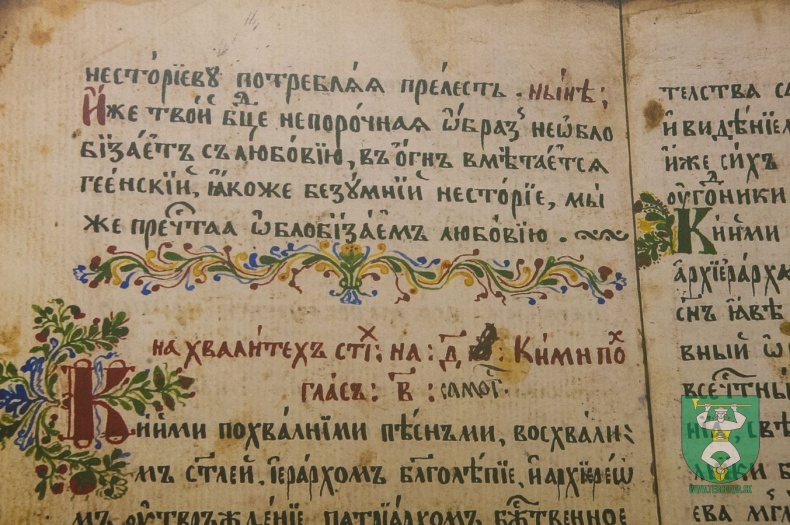 несто́рїеву потребля́ѧ пре́лесть . ны́нѣ;
И҆́же твои̑ бц҃е непоро́чнаѧ ѡ҆́браз неѡбло
бїза́етъ съ любо́вїю, въ о҆́гнь вмѣта́етсѧ
гее́нскїй, ꙗ҆́коже безу́мнїй несто́рїе, мы́
же пречⷭ҇таа ѡ҆блобїза́емъ любо́вїю .
на хвали́техъ стїⷯ: на: д҃ : Ки́ми поⷯ
гла́съ: в҃ : самоⷢ
Ки́ими похва́лнїими пѣ́снъми, восхвали́
мъ ст҃лей, і҆ера́рхомъ бл҃голѣ́пїе, и҆ а҆рхїере́ѡ
мъ оу҆твръжде́нїе, патрїа́рхомъ бж҃твенное
телства
и҆ видѣ́нїем
и҆́же си́хъ
Ки́ими
а҆рхїера́рха
сн҃ъ ꙗ҆́вѣ
вный
всечⷭ҇тны
ева